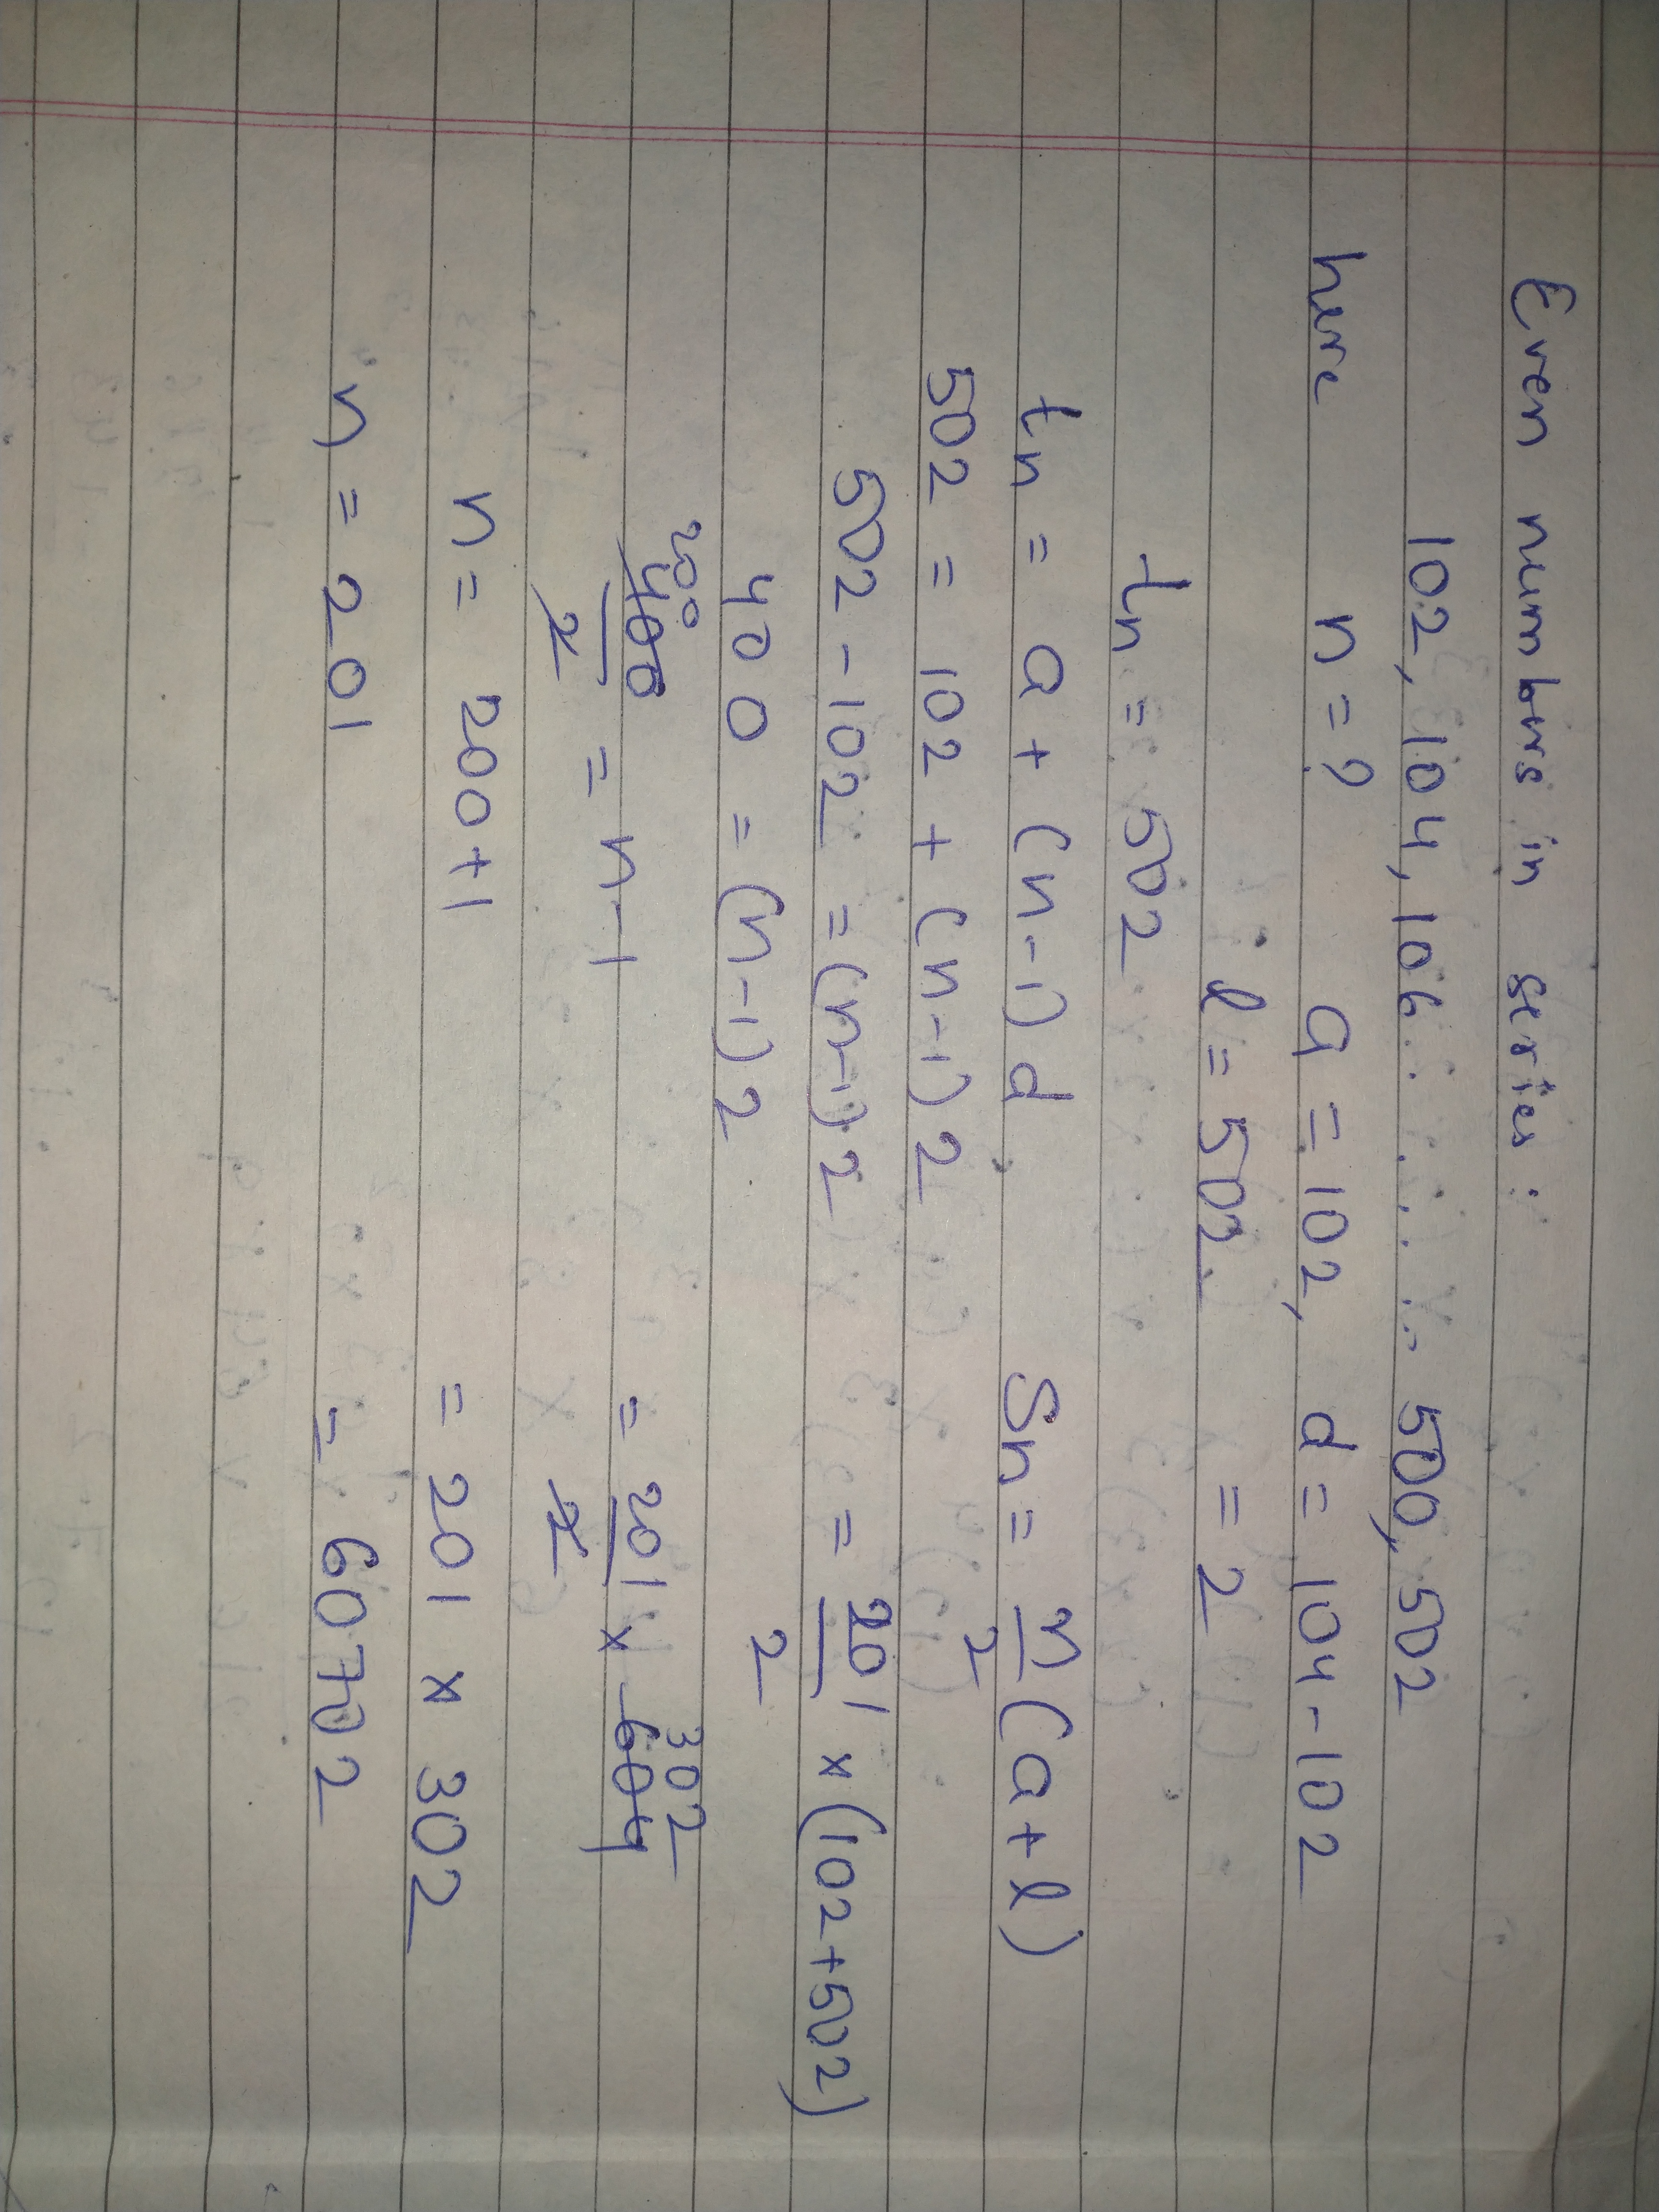 Even numbers in series :
102, 104, 106 . . . . . . . 500, 502
here n = ? a = 102, d = 104 - 102
l = 502 = 2
tn = 502
tn = a + (n-1) d
502 = 102 + (n-1) 2
502 - 102 = (n-1) 2
400 = (n-1) 2
200
400/2 = n-1
n = 200+1
n = 201
Sn = n/2 (a + l)
= 201/2 × (102+502)
302
= 201/2 × 604
= 201 × 302
= 60702